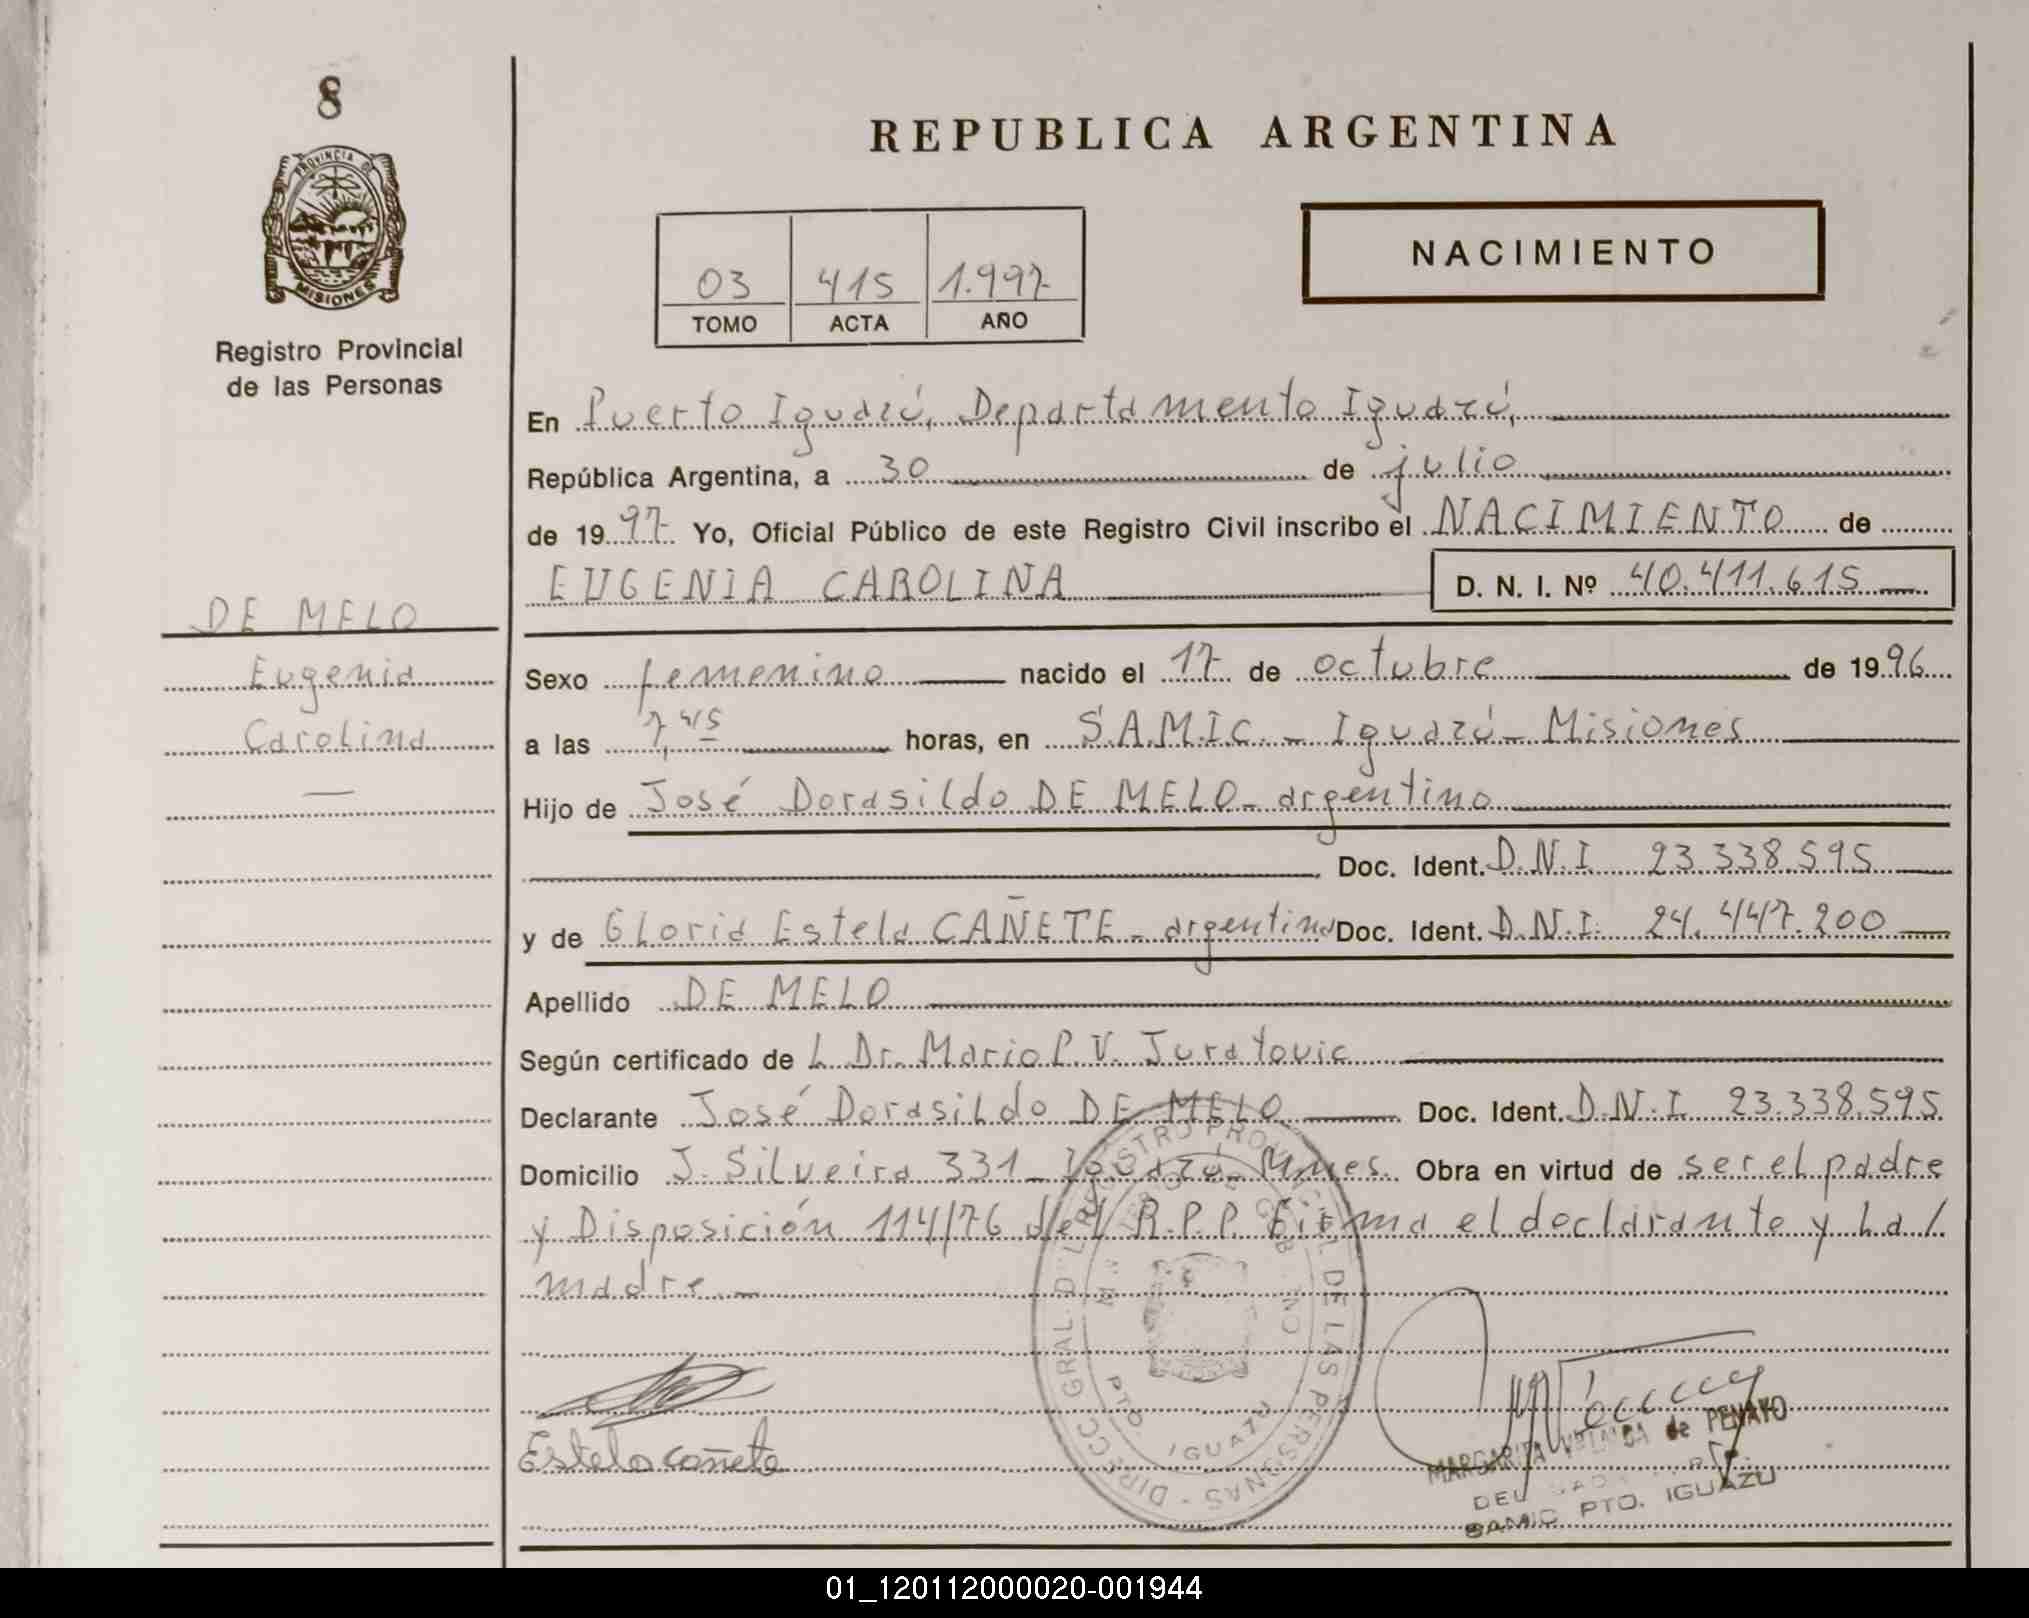 8
REPUBLICA ARGENTINA
PROVINCIA DE
MISIONES
Registro Provincial
de las Personas
NACIMIENTO
03 415 1.997
TOMO ACTA AÑO
En Puerto Iguazú, Departamento Iguazú,
República Argentina, a 30 de julio
de 1997 Yo, Oficial Público de este Registro Civil inscribo el NACIMIENTO de
EUGENIA CAROLINA D. N. I. Nº 40.411.615
DE MELO
Eugenia
Carolina
Sexo femenino nacido el 17 de octubre de 1996
a las 7,45 horas, en S.A.M.I.C. - Iguazú - Misiones
Hijo de José Dorasildo DE MELO - argentino
Doc. Ident. D.N.I 23.338.595
y de Gloria Estela CAÑETE - argentina Doc. Ident. D.N.I. 24.447.200
Apellido DE MELO
Según certificado de L Dr. Mario P. V. Juratovic
Declarante José Dorasildo DE MELO Doc. Ident. D.N.I. 23.338.595
Domicilio J. Silveira 331 - Iguazú - Mnes. Obra en virtud de ser el padre
y Disposición 114/76 del R.P.P. Firma el declarante y la /
madre. -
DIRECC GRAL. DEL REGISTRO PROVINCIAL DE LAS PERSONAS
PTO IGUAZU
Estela cañete
MARGARITA de PENAYO
SAMIC PTO. IGUAZU
01_120112000020-001944